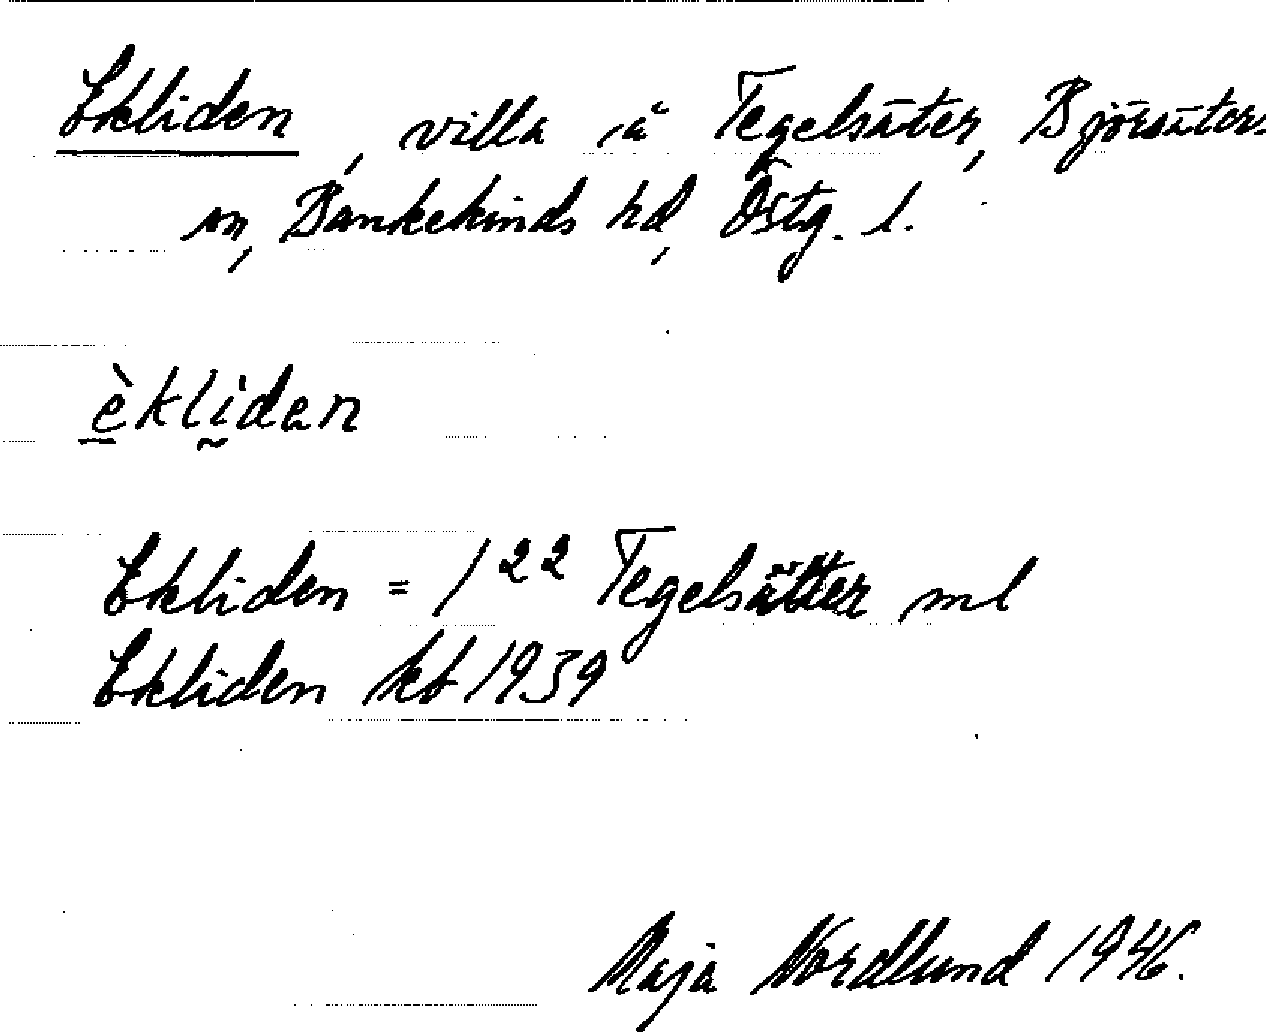 Ekliden, villa å Tegelsäter, Björsäters
sn, Bankekinds hd, Östg. l.
èklìdan
Ekliden = 1²² Tegelsätter ml
Ekliden kb 1939
Maja Nordlund 1946.